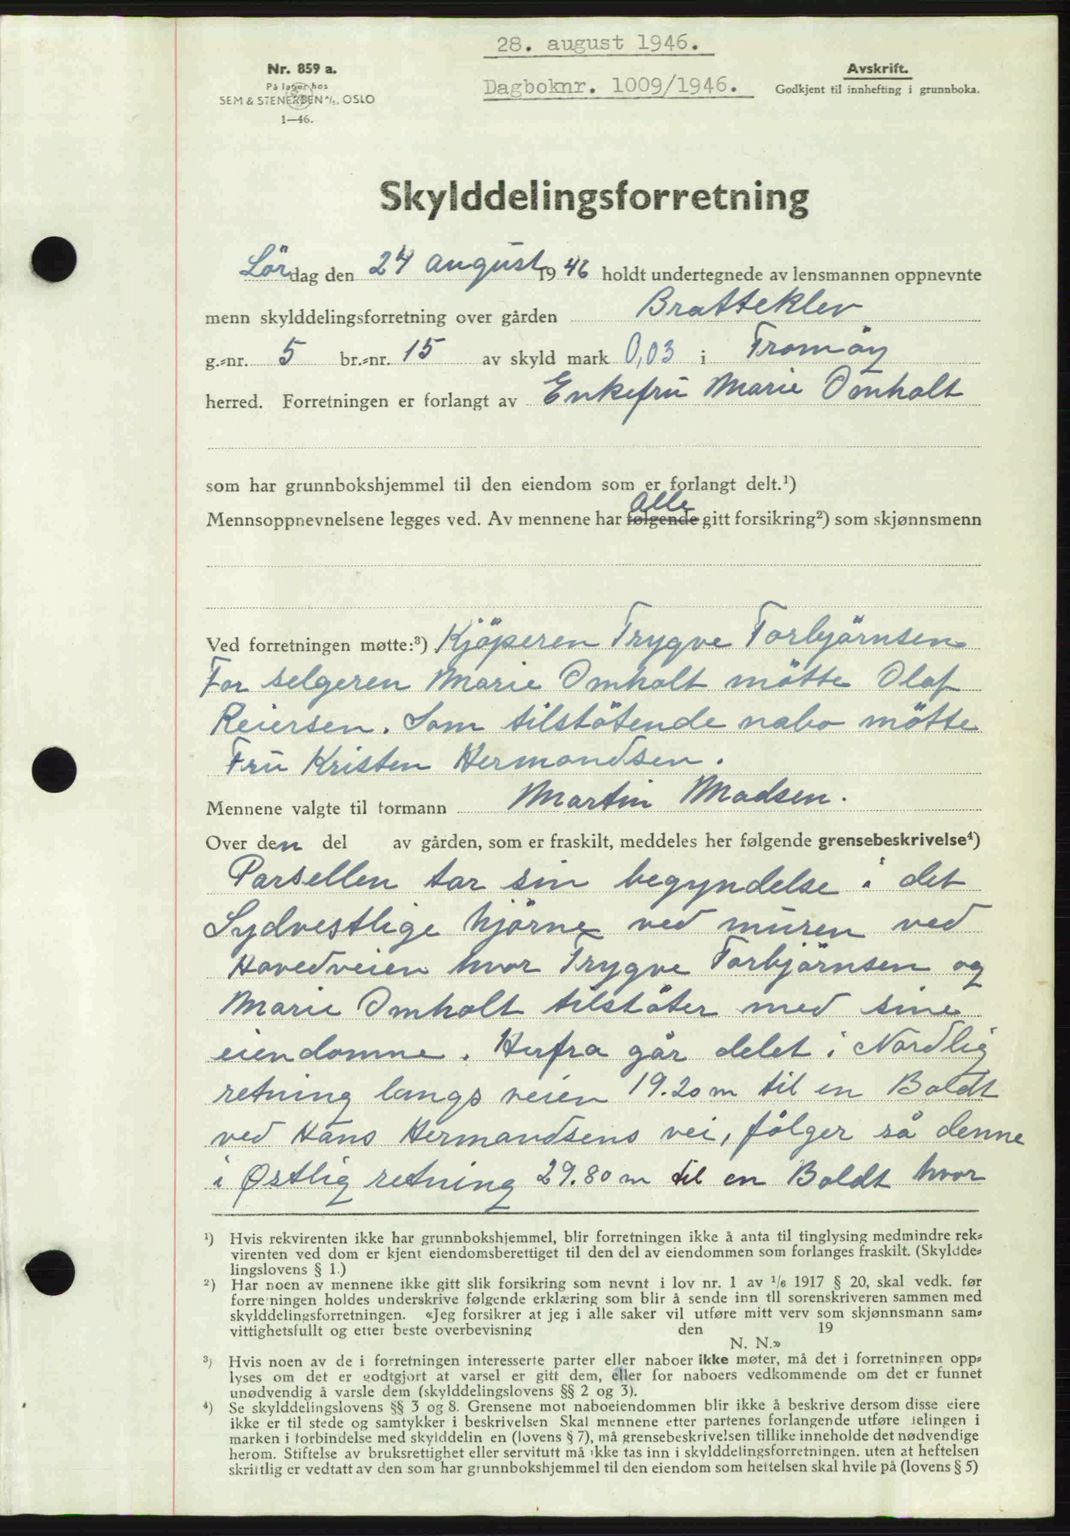 28. august 1946.
Dagboknr. 1009/1946.
Nr. 859 a.
På lager hos
SEM & STENERSEN A/S, OSLO
1—46.
Avskrift.
Godkjent til innhefting i grunnboka.
Skylddelingsforretning
Lördag den 24 august 1946 holdt undertegnede av lensmannen oppnevnte
menn skylddelingsforretning over gården Bratteklev
g.-nr. 5 br.-nr. 15 av skyld mark 0,03 i Tromöy
herred. Forretningen er forlangt av Enkefru Marie Omholt
som har grunnbokshjemmel til den eiendom som er forlangt delt.¹)
Alle
Mennsoppnevnelsene legges ved. Av mennene har følgende gitt forsikring²) som skjønnsmenn
Ved forretningen møtte:³) Kjöperen Trygve Torbjörnsen
For selgeren Marie Omholt mötte Olaf
Reiersen. Som tilstötende nabo mötte
Fru Kristen Hermandsen.
Mennene valgte til formann Martin Madsen.
Over den del av gården, som er fraskilt, meddeles her følgende grensebeskrivelse⁴)
Parsellen tar sin begyndelse i det
Sydvestlige hjörne ved muren ved
Hovedveien hvor Trygve Torbjörnsen og
Marie Omholt tilstöter med sine
eiendomme. Herfra går delet i Nordlig
retning langs veien 19.20 m til en Boldt
ved Hans Hermandsens vei, fölger så denne
i Østlig retning 29.80 m til en Boldt hvor
¹) Hvis rekvirenten ikke har grunnbokshjemmel, blir forretningen ikke å anta til tinglysing medmindre rek-
virenten ved dom er kjent eiendomsberettiget til den del av eiendommen som forlanges fraskilt. (Skyldde-
lingslovens § 1.)
²) Har noen av mennene ikke gitt slik forsikring som nevnt i lov nr. 1 av 1/6 1917 § 20, skal vedk. før
forretningen holdes underskrive følgende erklæring som blir å sende inn til sorenskriveren sammen med
skylddelingsforretningen. «Jeg forsikrer at jeg i alle saker vil utføre mitt verv som skjønnsmann sam-
vittighetsfullt og etter beste overbevisning den 19
N. N.»
³) Hvis noen av de i forretningen interesserte parter eller naboer ikke møter, må det i forretningen opp-
lyses om det er godtgjort at varsel er gitt dem, eller for naboers vedkommende om det er funnet
unødvendig å varsle dem (skylddelingslovens §§ 2 og 3).
⁴) Se skylddelingslovens §§ 3 og 8. Grensene mot naboeiendommen blir ikke å beskrive dersom disse eiere
ikke er til stede og samtykker i beskrivelsen Skal mennene etter partenes forlangende utføre delingen i
marken i forbindelse med skylddelin en (lovens § 7), må grensebeskrivelsen tillike inneholde det nødvendige
herom. Stiftelse av bruksrettighet eller servitutt må ikke tas inn i skylddelingsforretningen, uten at heftelsen
skriftlig er vedtatt av den som har grunnbokshjemmel til den eiendom som heftelsen skal hvile på (lovens § 5)